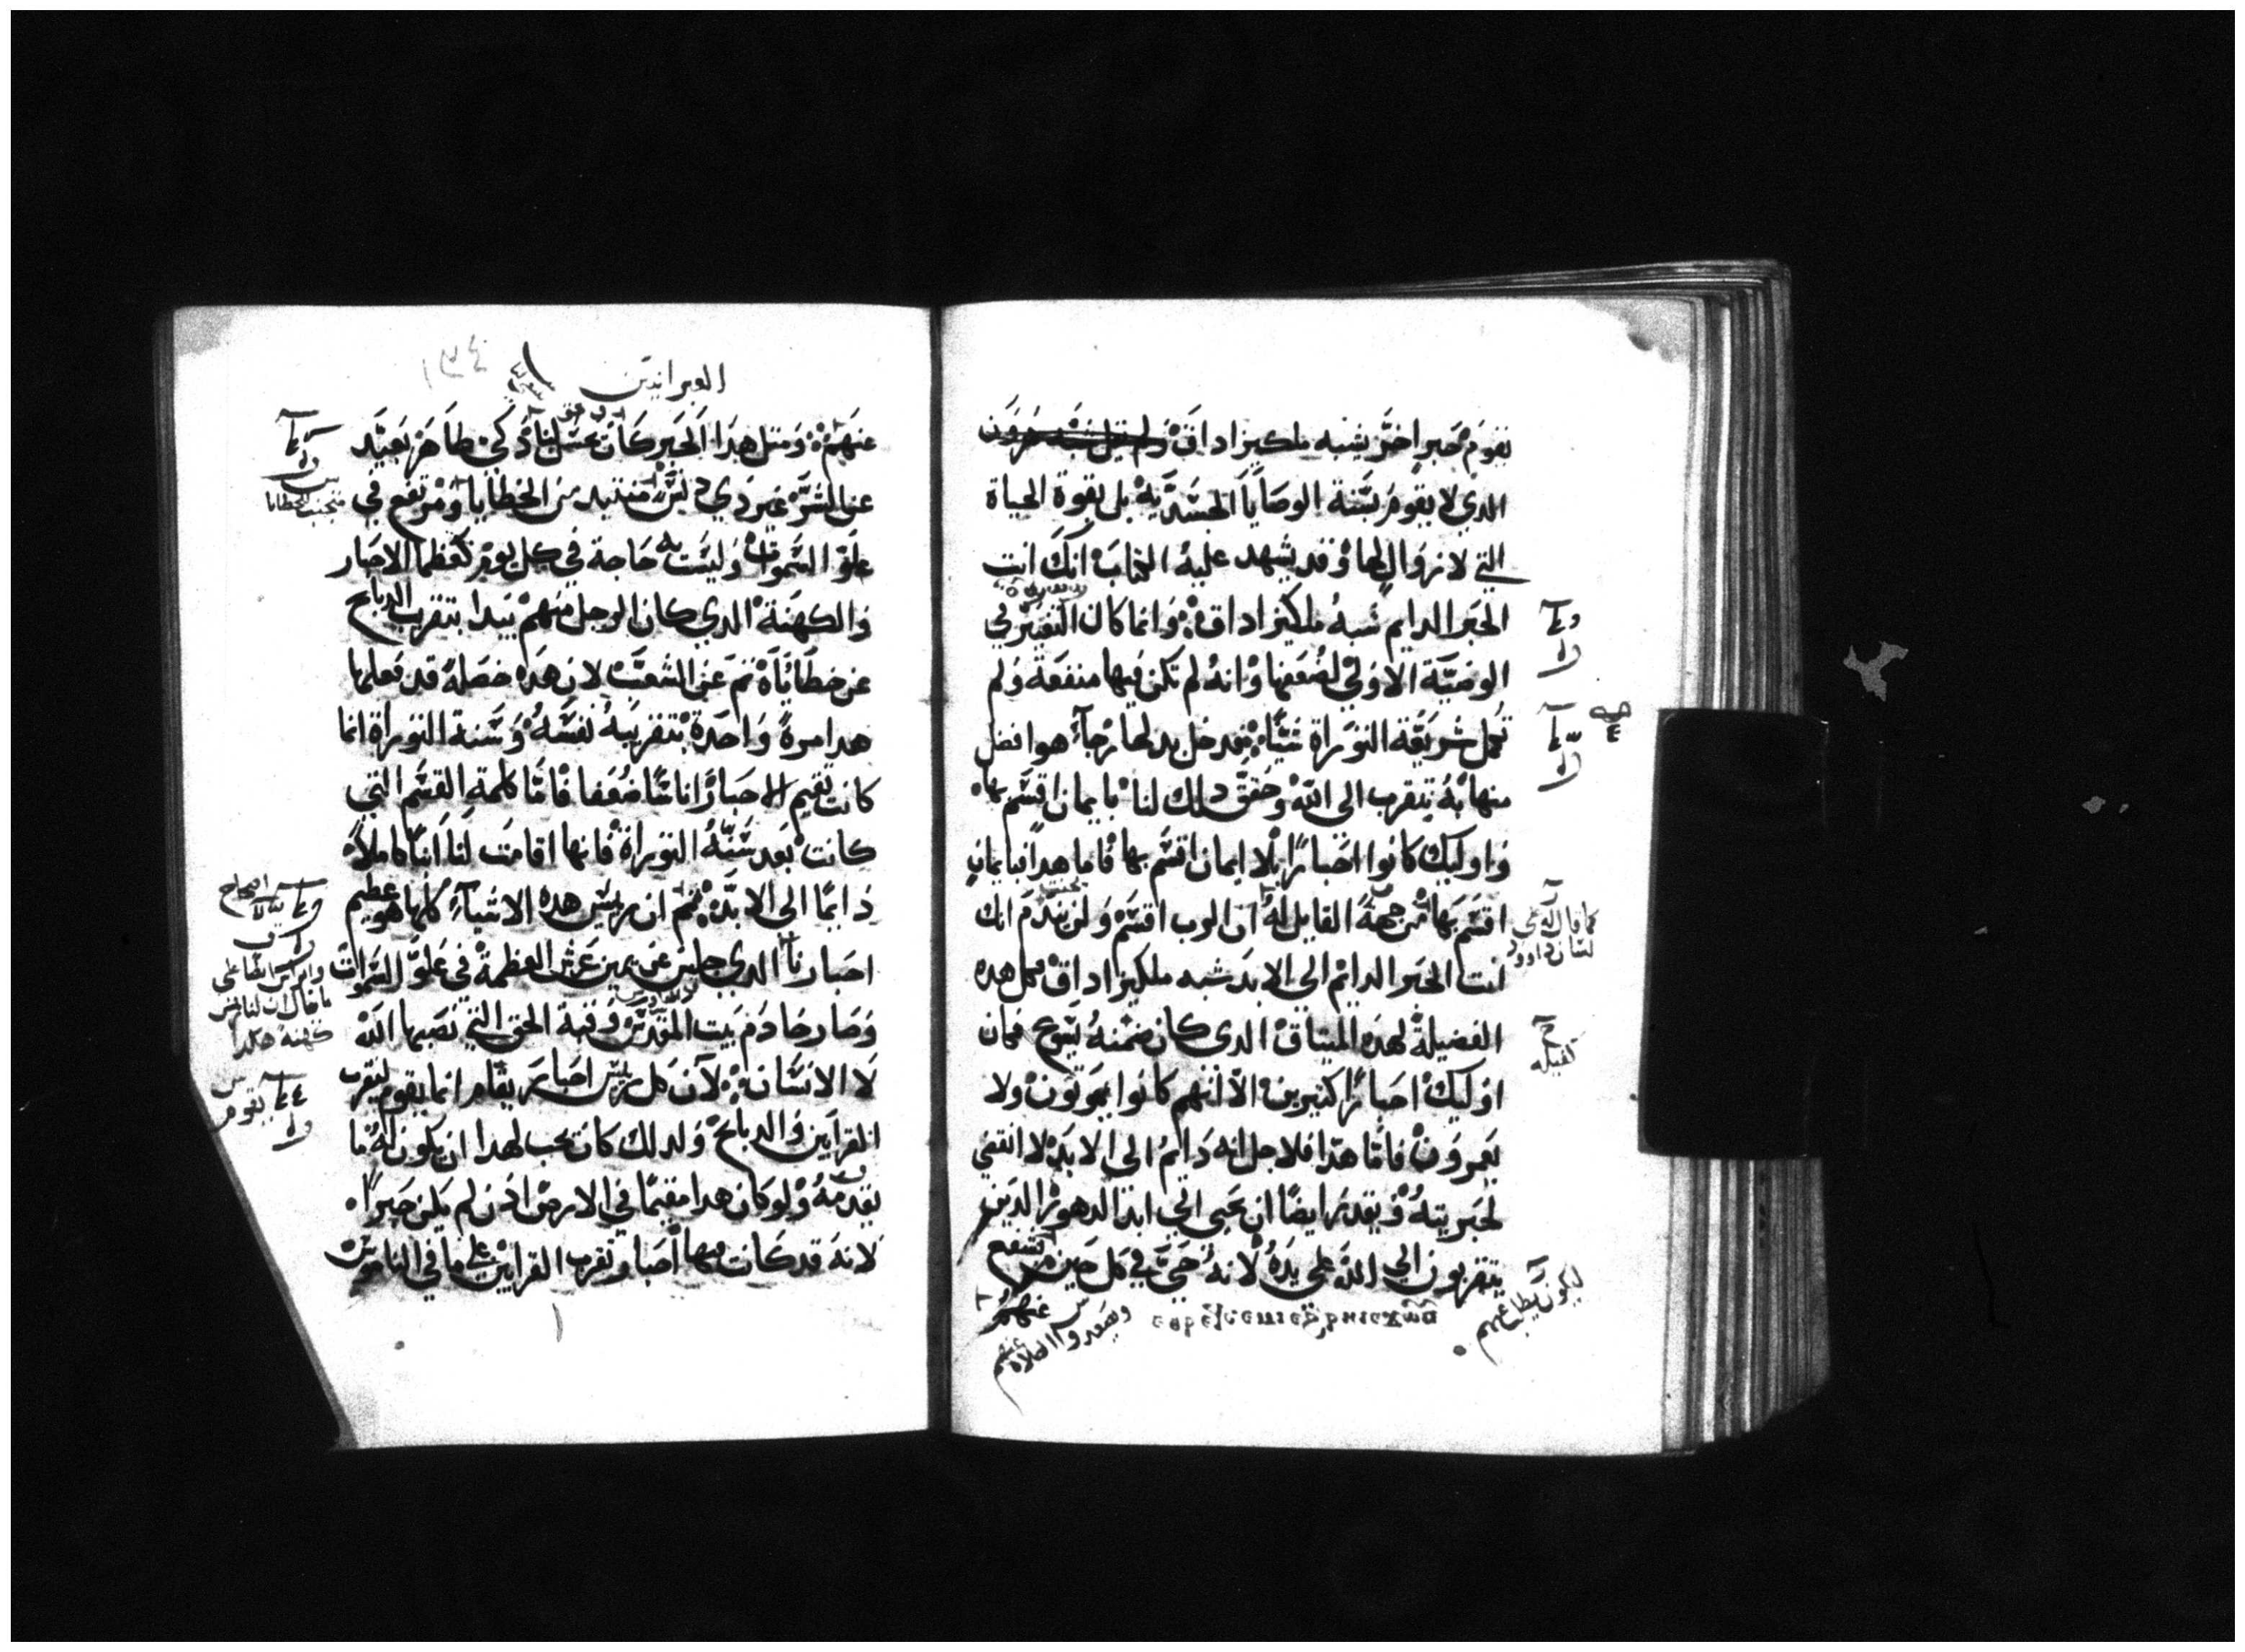 يقوم حبر اخر يشبه ملكيزاداق
الدي لا يقوم بسنة الوصايا الجسدية بل بقوة الحياة
التي لا زوال لها وقد يشهد عليه الكتاب انك انت
الحبر الدايم شبه ملكيزاداق وانما كان التغيير في
الوصية الاولي لضعفها وانه لم تكن فيها منفعة ولم
تكمل شريعة التوراة شيًا فدخل بدلها رجآء هو افضل
منها به نتقرب الى الله وحقق دلك لنا بايمان اقسم بها
واوليك كانوا احبارًا بلا ايمان اقسم بها فاما هدا فبايمان
اقسم بها من جهة القايل له ان الرب اقسم ولن يندم انك
انت الحبر الدايم الى الابد شبه ملكيزاداق كل هده
الفضيلة لهده الميتاق الدي كان ضمنه يسوع فكان
اوليك احبارًا كتيرين الا انهم كانوا يموتون ولا
يعمرون فاما هدا فلاجل انه دايم الى الابد لا انقضي
لحبريته ويقدر ايضًا ان يحيي الي ابد الدهور الدين
يتقربون الي الله علي يده لانه حي في كل حين
عنهم
كفيله
العبرانيين
١٣٤
عنهم ومتل هدا الحبر كان لنا زكي طاهر بعيد
عن الشر غير دي دنس من الخطايا ومرتفع في
علو السموات وليست به حاجة في كل يوم كعظما الاحبار
والكهنة الدي كان الرجل منهم يبدا بتقرب الدبايح
عن خطاياه تم عن الشعب لان هده خصلة قد فعلها
هدا مرة واحدة بتقريبه نفسه وسنة التوراة انما
كانت تقيم الاحبار اناسًا ضعفا فاما كلمة القسم التي
كانت بعد سنة التوراة فانها اقامت لنا ابنًا كاملا
دايمًا الى الابد تم ان ريس هده الاشيآء كلها هو عظيم
احبارنا الدي جلس عن يمين عرش العظمة في علو السموات
وصار خادم بيت المقدس وقبة الحق التي نصبها الله
لا الانسان لان كل ريس احبار يقام انما يقوم ليقرب
القرابين والدبايح ولدلك كان يجب لهدا ان يكون له ما
يقدمه ولو كان هدا مقيمًا في الارض ادن لم يكن حبرًا
لانه قد كانت فيها احبار تقرب القرابين علي ما في الناموس